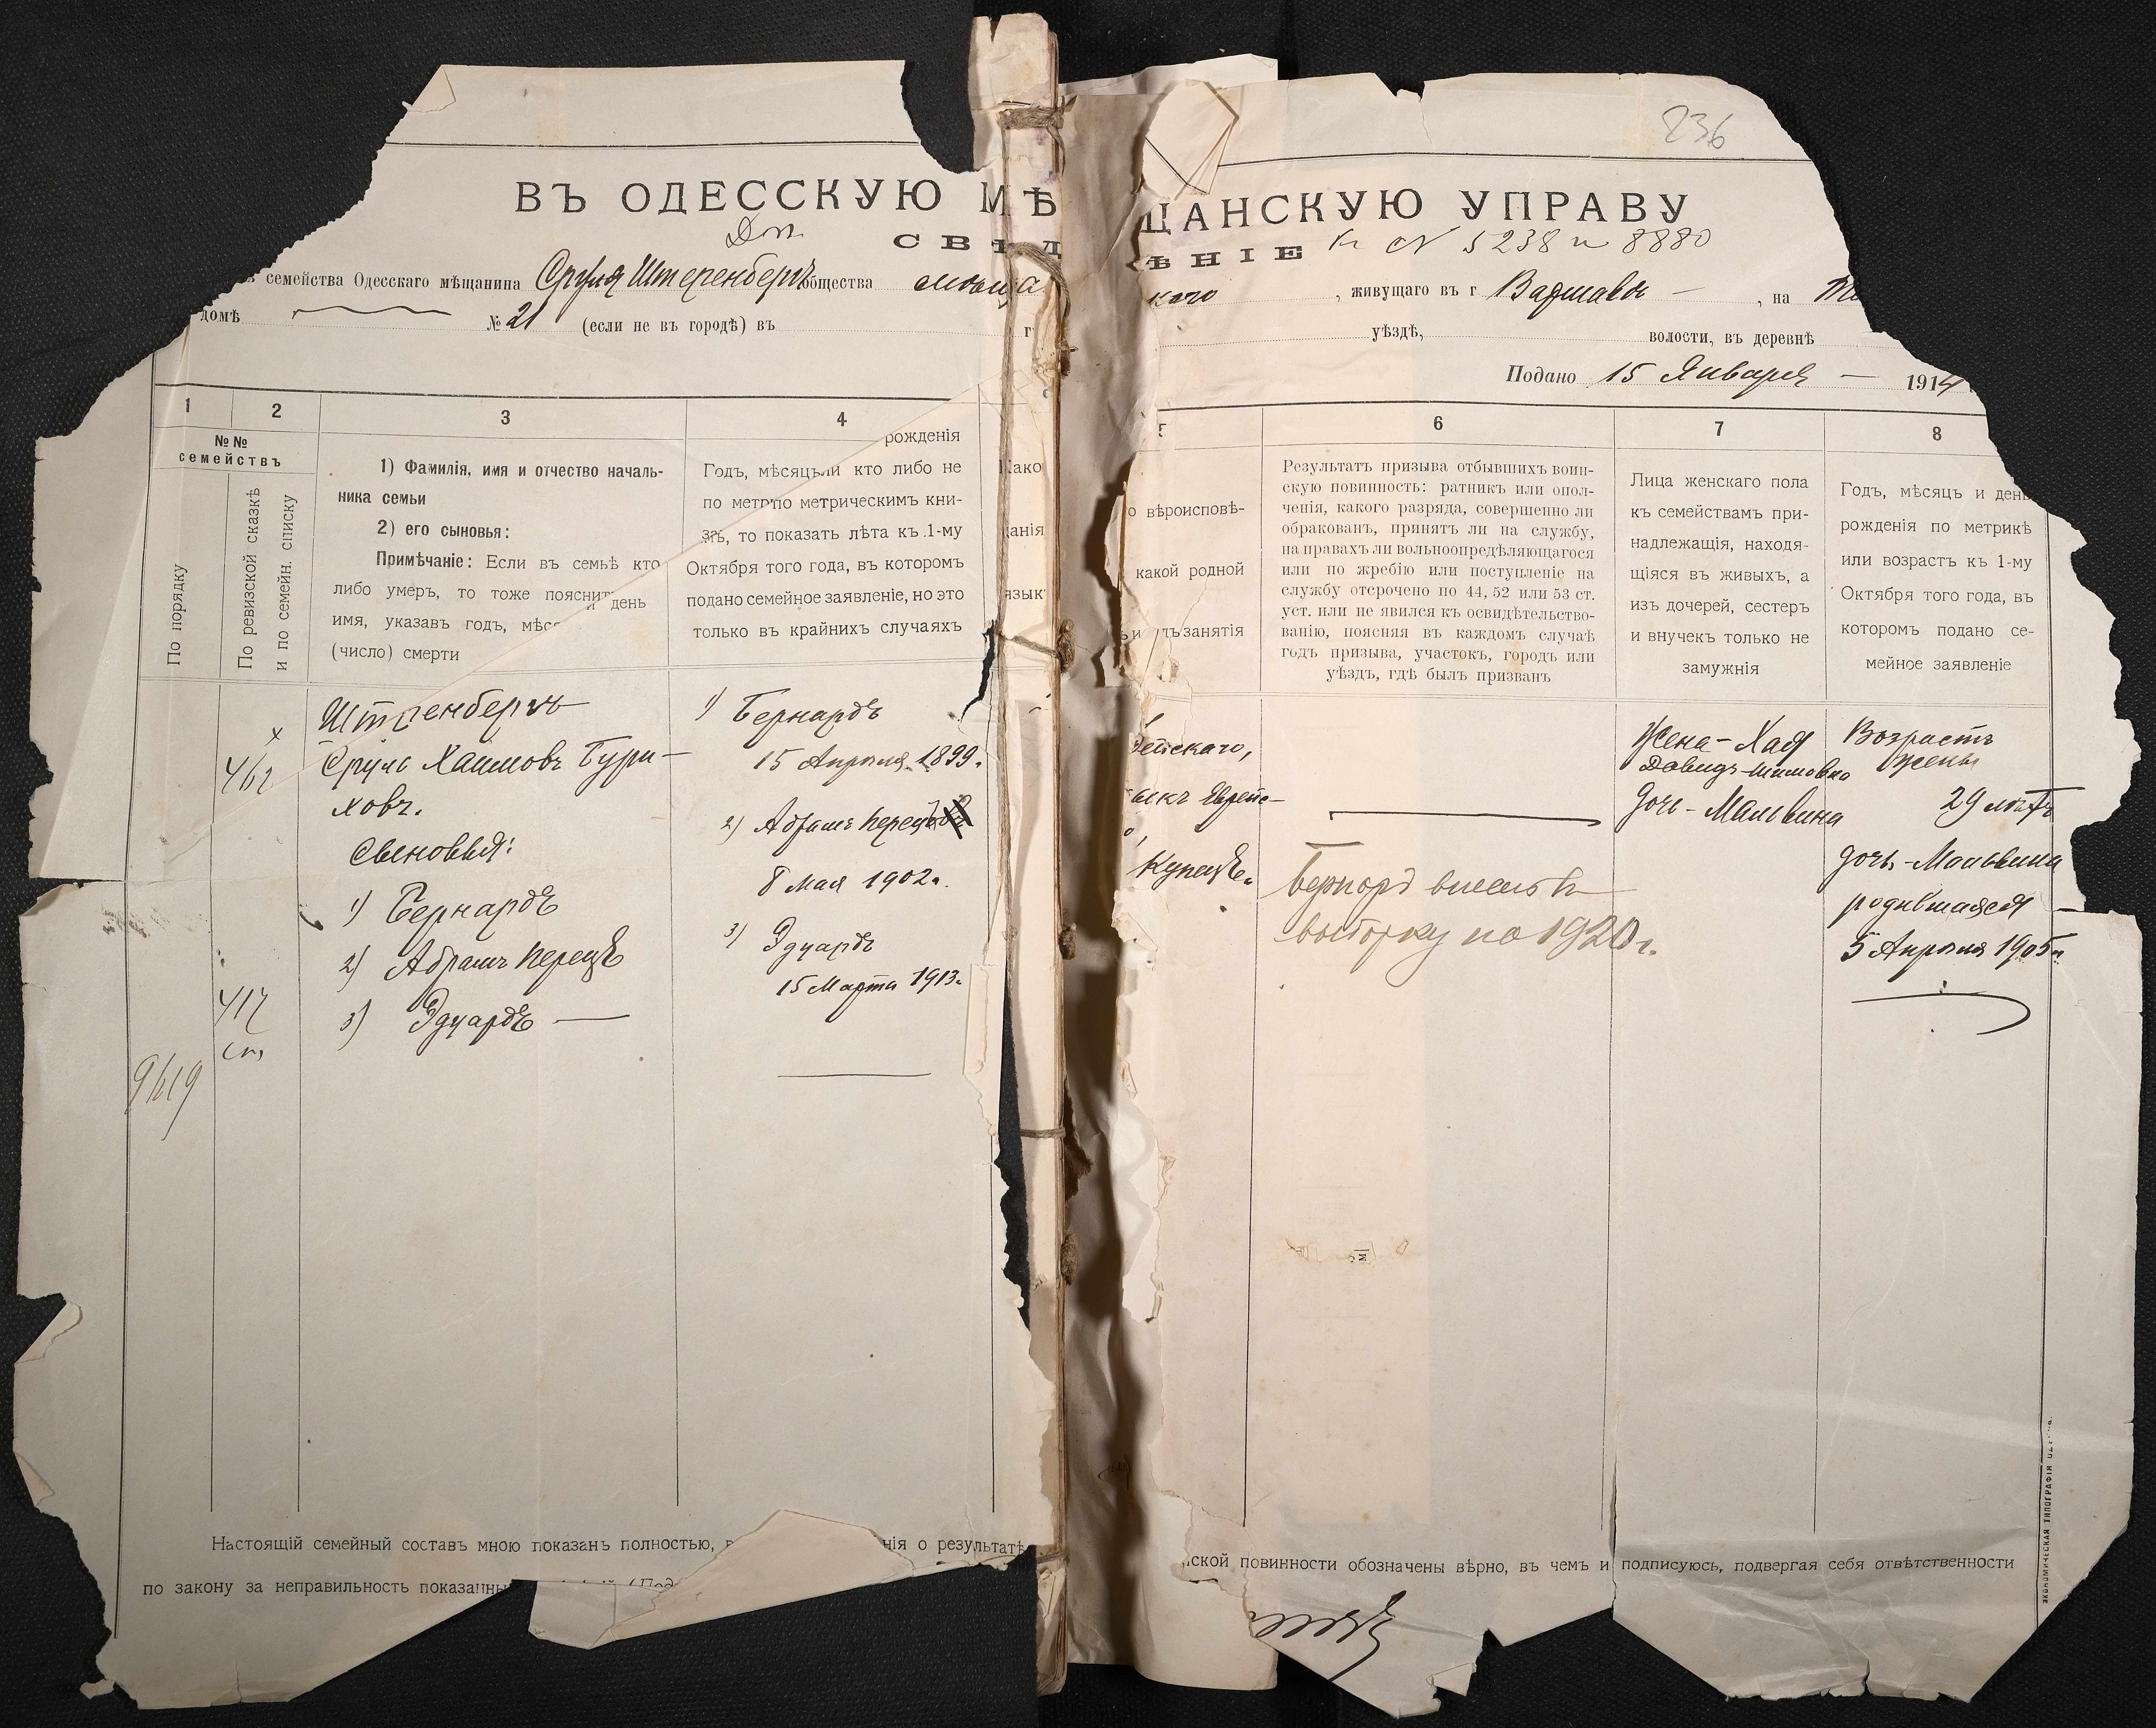 236
ВЪ ОДЕССКУЮ МѢ ЩАНСКУЮ УПРАВУ
Доп. СВѢД ѢНІЕ к № 5238 и 8880
семейства Одесскаго мѣщанина Сруля Штеренбергъ общества , живущаго въ г Варшавы — , на
домѣ № 21 (если не въ городѣ) въ уѣздѣ, волости, въ деревнѣ
Подано 15 Января — 1914
1 2 3 4 5 6 7 8
№№ семействъ
По порядку
По ревизской сказкѣ
и по семейн. списку
1) Фамилія, имя и отчество началь-
ника семьи
2) его сыновья:
Примѣчаніе: Если въ семьѣ кто
либо умеръ, то тоже пояснит
имя, указавъ годъ, мѣс и день
(число) смерти
рожденія
Годъ, мѣсяцъ ли кто либо не
по метр по метрическимъ кни-
зъ, то показать лѣта къ 1-му
Октября того года, въ которомъ
подано семейное заявленіе, но это
только въ крайнихъ случаяхъ
Како
о вѣроисповѣ-
данія
какой родной
язык
занятія
Результатъ призыва отбывшихъ воин-
скую повинность: ратникъ или опол-
ченія, какого разряда, совершенно ли
обракованъ, принятъ ли на службу,
на правахъ ли вольноопредѣляющагося
или по жребію или поступленіе на
службу отсрочено по 44, 52 или 53 ст.
уст. или не явился къ освидѣтельство-
ванію, поясняя въ каждомъ случаѣ
годъ призыва, участокъ, городъ или
уѣздъ, гдѣ былъ призванъ
Лица женскаго пола
къ семействамъ при-
надлежащія, находя-
щіяся въ живыхъ, а
изъ дочерей, сестеръ
и внучекъ только не
замужнія
Годъ, мѣсяцъ и день
рожденія по метрикѣ
или возрастъ къ 1-му
Октября того года, въ
котором подано се-
мейное заявленіе
х
462
417
ст
9619
Штеренбергъ
Сруль Хаимовъ Бури-
ховъ.
Сыновья:
1) Бернардъ
2) Абрамъ Перецъ
3) Эдуардъ —
1) Бернардъ
15 Апрѣля 1899г.
2) Абрамъ Перецъ
8 Мая 1902г.
3) Эдуардъ
15 Марта 1913г.
ейскаго,
Еврейс-
о,
Купецъ.
Бернард внесен в
выборку по 1920г.
Жена - Хая
Давидъ-Шимовна
Дочь - Мальвина
Возрастъ
жены
29 лѣтъ
дочь - Мальвина
родившаяся —
5 Апрѣля 1905г.
Настоящій семейный составъ мною показанъ полностью, в нія о результатѣ нской повинности обозначены вѣрно, въ чемъ и подписуюсь, подвергая себя отвѣтственности
по закону за неправильность показаны
ЭКОНОМИЧЕСКАЯ ТИПОГРАФІЯ